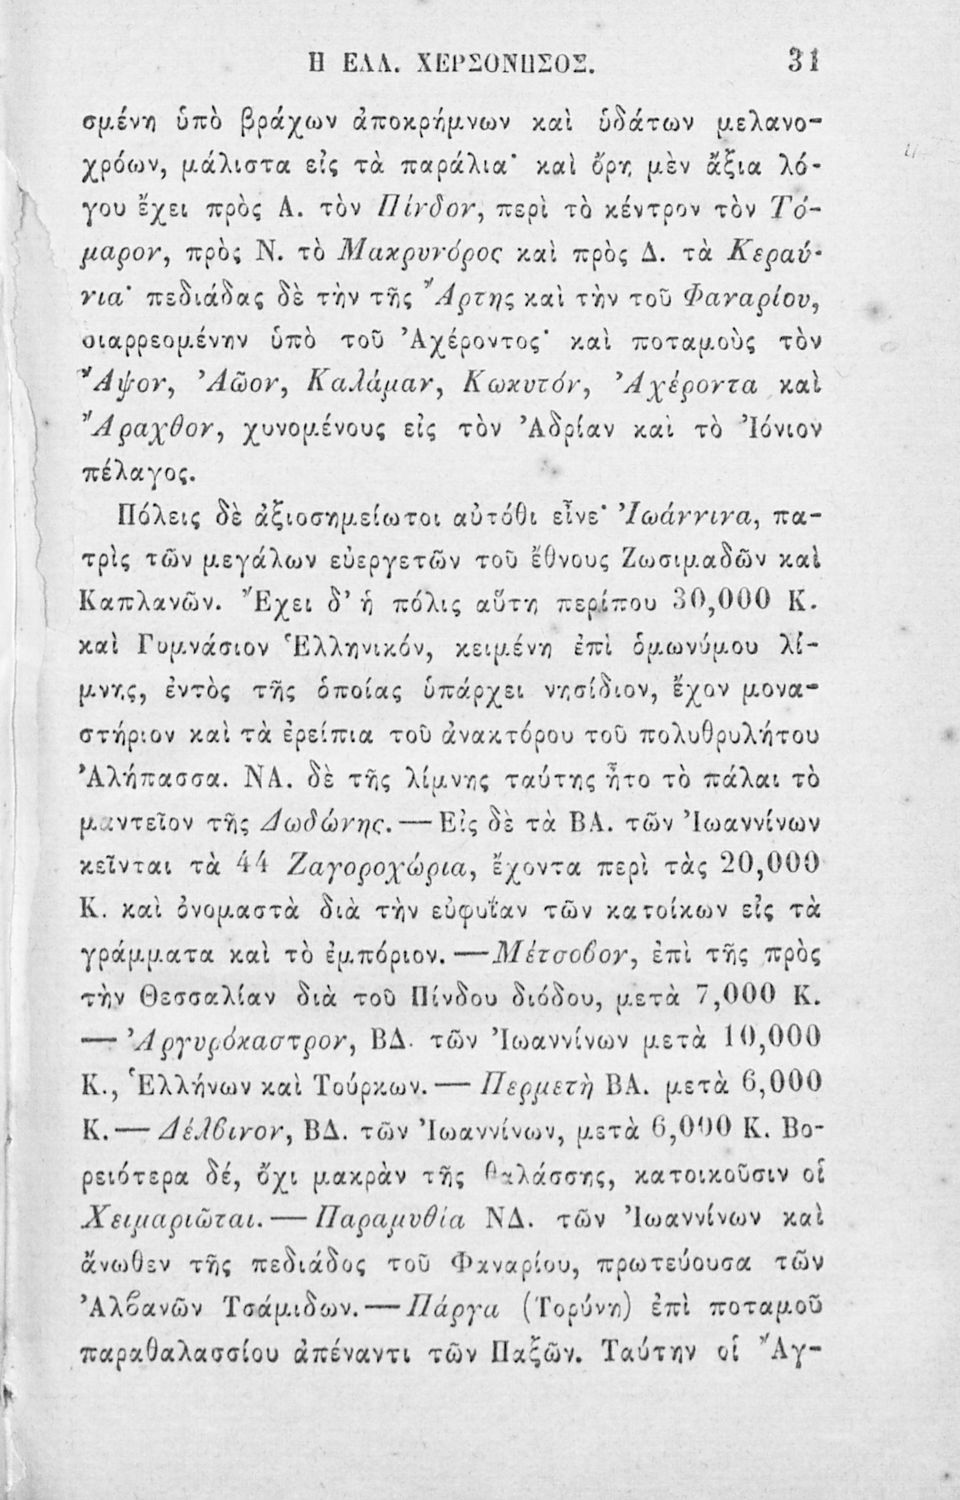 Η ΕΛΛ. ΧΕΡΣΟΝΗΣΟΣ. 31
σμένη ὑπὸ βράχων ἀποκρήμνων καὶ ὑδάτων μελανο-
χρόων, μάλιστα εἰς τὰ παράλια· καὶ ὄρη μὲν ἄξια λό-
γου ἔχει πρὸς Α. τὸν Πίνδον, περὶ τὸ κέντρον τὸν Τό-
μαρον, πρὸς Ν. τὸ Μακρυνόρος καὶ πρὸς Δ. τὰ Κεραύ-
νια· πεδιάδας δὲ τὴν τῆς Ἄρτης καὶ τὴν τοῦ Φαναρίου,
διαρρεομένην ὑπὸ τοῦ Ἀχέροντος· καὶ ποταμοὺς τὸν
Ἄψον, Ἀῶον, Καλάμαν, Κωκυτόν, Ἀχέροντα καὶ
Ἄραχθον, χυνομένους εἰς τὸν Ἀδρίαν καὶ τὸ Ἰόνιον
πέλαγος.
Πόλεις δὲ ἀξιοσημείωτοι αὐτόθι εἶνε· Ἰωάννινα, πα-
τρὶς τῶν μεγάλων εὐεργετῶν τοῦ ἔθνους Ζωσιμαδῶν καὶ
Καπλανῶν. Ἔχει δ' ἡ πόλις αὕτη περίπου 30,000 Κ.
καὶ Γυμνάσιον Ἑλληνικόν, κειμένη ἐπὶ ὁμωνύμου λί-
μνης, ἐντὸς τῆς ὁποίας ὑπάρχει νησίδιον, ἔχον μονα-
στήριον καὶ τὰ ἐρείπια τοῦ ἀνακτόρου τοῦ πολυθρυλήτου
Ἀλήπασσα. ΝΑ. δὲ τῆς λίμνης ταύτης ἦτο τὸ πάλαι τὸ
μαντεῖον τῆς Δωδώνης. — Εἰς δὲ τὰ ΒΑ. τῶν Ἰωαννίνων
κεῖνται τὰ 44 Ζαγοροχώρια, ἔχοντα περὶ τὰς 20,000
Κ. καὶ ὀνομαστὰ διὰ τὴν εὐφυΐαν τῶν κατοίκων εἰς τὰ
γράμματα καὶ τὸ ἐμπόριον. — Μέτσοβον, ἐπὶ τῆς πρὸς
τὴν Θεσσαλίαν διὰ τοῦ Πίνδου διόδου, μετὰ 7,000 Κ.
— Ἀργυρόκαστρον, ΒΔ. τῶν Ἰωαννίνων μετὰ 10,000
Κ., Ἑλλήνων καὶ Τούρκων. — Περμετὴ ΒΑ. μετὰ 6,000
Κ. — Δέλβινον, ΒΔ. τῶν Ἰωαννίνων, μετὰ 6,000 Κ. Βο-
ρειότερα δέ, ὄχι μακρὰν τῆς θαλάσσης, κατοικοῦσιν οἱ
Χειμαριῶται. — Παραμυθία ΝΔ. τῶν Ἰωαννίνων καὶ
ἄνωθεν τῆς πεδιάδος τοῦ Φαναρίου, πρωτεύουσα τῶν
Ἀλβανῶν Τσάμιδων. — Πάργα (Τορύνη) ἐπὶ ποταμοῦ
παραθαλασσίου ἀπέναντι τῶν Παξῶν. Ταύτην οἱ Ἄγ-